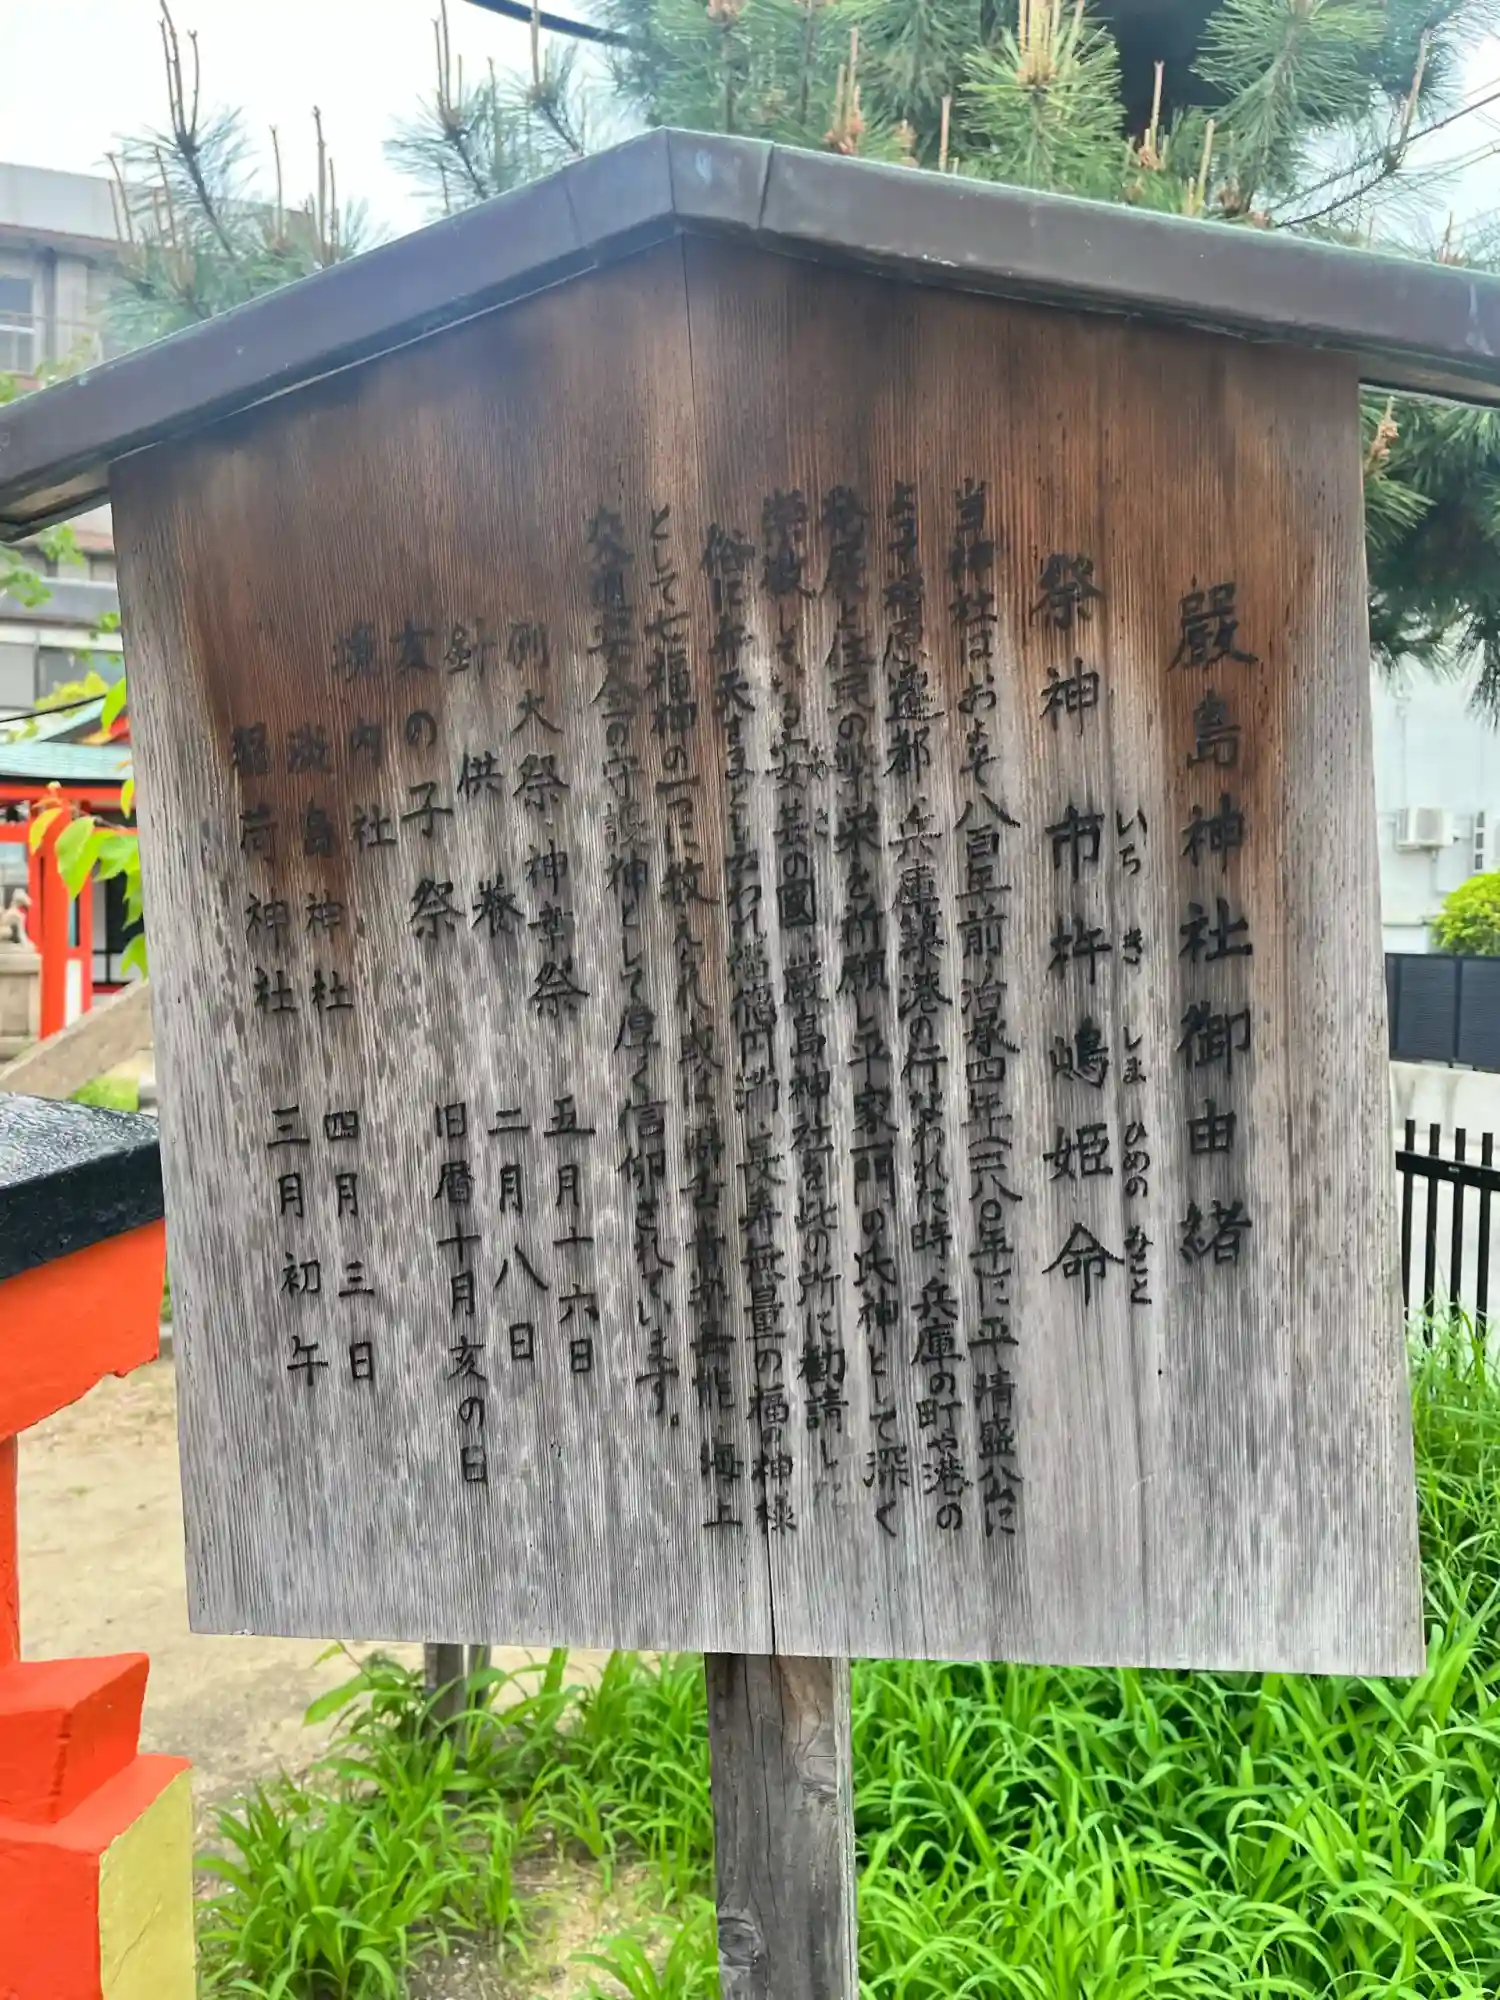 嚴島神社御由緒
祭神 市杵嶋姫命
いち き しま ひめの みこと
当神社は、およそ八百年前治承四年(一一八〇年)に平清盛公に
よる福原遷都、兵庫築港の行なわれた時、兵庫の町や港の
発展と住民の繁栄を祈願し平家一門の氏神として深く
崇敬している安芸の國、厳島神社を此の所に勧請した
俗に弁天さまともいわれ福徳円満、長寿無量の福の神様
として七福神の一つに数えられ或は 音楽 芸能 海上
交通安全の守護神として厚く信仰されています。
例大祭・神楽祭 五月十六日
針供養 二月八日
亥の子祭 旧暦十月亥の日
境内社
淡島神社 四月三日
稲荷神社 三月初午